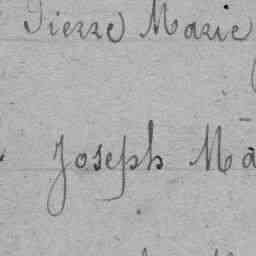 Pierre Marie
Joseph Ma